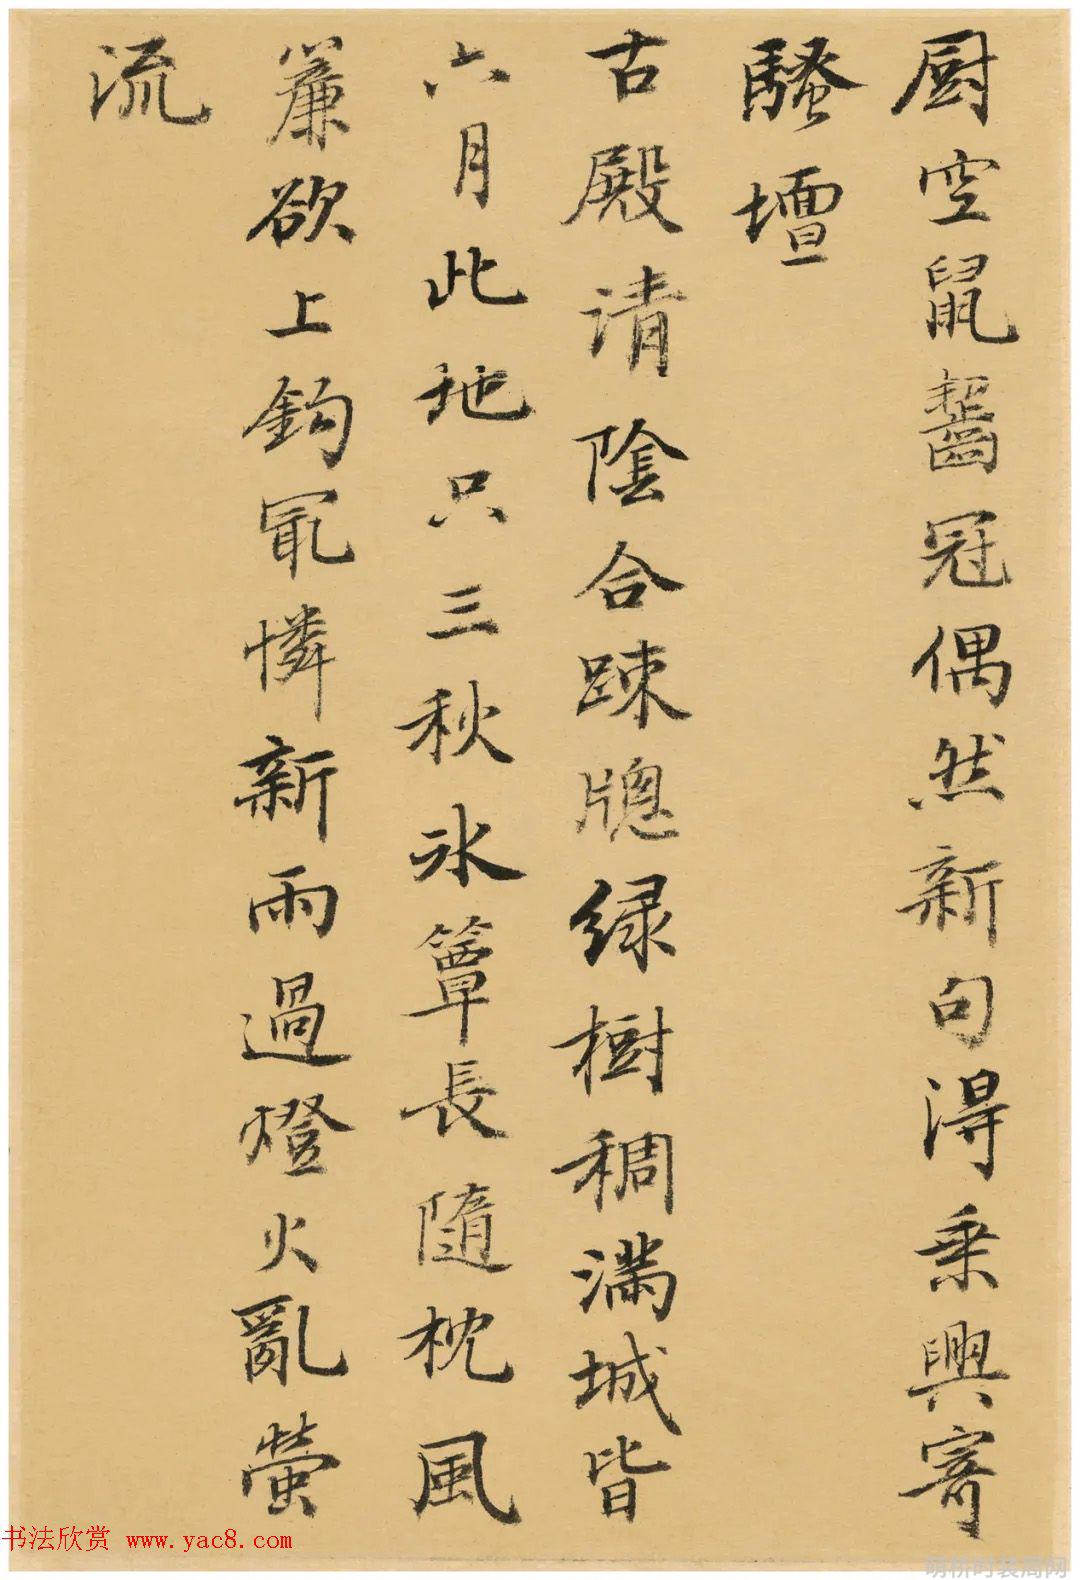 厨空鼠齧冠偶然新句淂乗興寄
騷壇
古殿请陰合踈牎緑樹稠滿城皆
六月此地只三秋氷簟長隨枕風
簾欲上鈎冣憐新雨過燈火亂螢
流
书法欣赏 www.yac8.com
萌桥时装周网